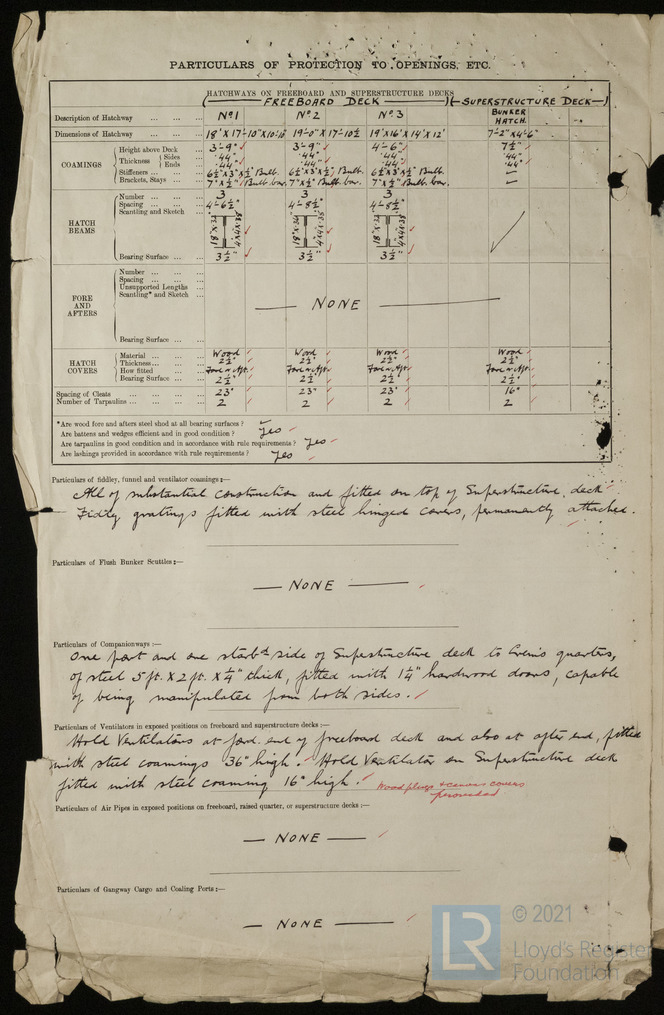 PARTICULARS OF PROTECTION TO OPENINGS, ETC.
HATCHWAYS ON FREEBOARD AND SUPERSTRUCTURE DECKS
FREEBOARD DECK SUPERSTRUCTURE DECK
Description of Hatchway ... ... ... No 1 No 2 No 3 BUNKER HATCH.
Dimensions of Hatchway ... ... ... 18' X 17'-10" X 10'-10 19'-0" X 17'-10½ 19' X 16' X 14' X 12' 7'-2" X 4'-6"
COAMINGS
Height above Deck ... 3'-9" 3'-9" 4'-6" 7½"
Thickness Sides ... .44" .44" .44 .44"
Ends ... .44 .44" .44 .44"
Stiffeners ... ... ... 6½" X 3" X ½" Bulb. 6½" X 3" X ½" Bulb. 6½" X 3" X ½" Bulb. —
Brackets, Stays ... ... 7" X ½" Bulb bar. 7" X ½" Bulb bar. 7" X ½" Bulb bar. —
HATCH BEAMS
Number ... ... ... 3 3 3
Spacing ... ... ... 4'-6½" 4'-8½" 4'-8½"
Scantling and Sketch
Bearing Surface ... ... 3½" 3½" 3½"
FORE AND AFTERS
Number ... ... ...
Spacing ... ... ...
Unsupported Lengths ...
Scantling* and Sketch ...
— NONE —
Bearing Surface ... ...
HATCH COVERS
Material ... ... ... Wood Wood Wood Wood
Thickness ... ... ... 2½" 2½" 2½" 2½"
How fitted ... ... Fore & Aft. Fore & Aft. Fore & Aft. Fore & Aft.
Bearing Surface ... ... 2½" 2½" 2½" 2½"
Spacing of Cleats ... ... ... ... 23" 23" 23" 16"
Number of Tarpaulins ... ... ... ... 2 2 2 2
*Are wood fore and afters steel shod at all bearing surfaces ? —
Are battens and wedges efficient and in good condition ? Yes
Are tarpaulins in good condition and in accordance with rule requirements ? Yes
Are lashings provided in accordance with rule requirements ? Yes
Particulars of fiddley, funnel and ventilator coamings :—
All of substantial construction and fitted on top of Superstructure deck
Fidley gratings fitted with steel hinged covers, permanently attached.
Particulars of Flush Bunker Scuttles :—
— NONE —
Particulars of Companionways :—
One port and one starbd side of Superstructure deck to Crew's quarters,
of steel 5 ft. X 2 ft. X ¼" thick, fitted with 1¼" hardwood doors, capable
of being manipulated from both sides.
Particulars of Ventilators in exposed positions on freeboard and superstructure decks :—
Hold Ventilators at ford. end of freeboard deck and also at after end, fitted
with steel coamings 36" high. Hold Ventilator on Superstructure deck
fitted with steel coaming 16" high. Wood plugs & canvas covers
provided
Particulars of Air Pipes in exposed positions on freeboard, raised quarter, or superstructure decks :—
— NONE —
Particulars of Gangway Cargo and Coaling Ports :—
— NONE —
LR
© 2021
Lloyd's Register
Foundation